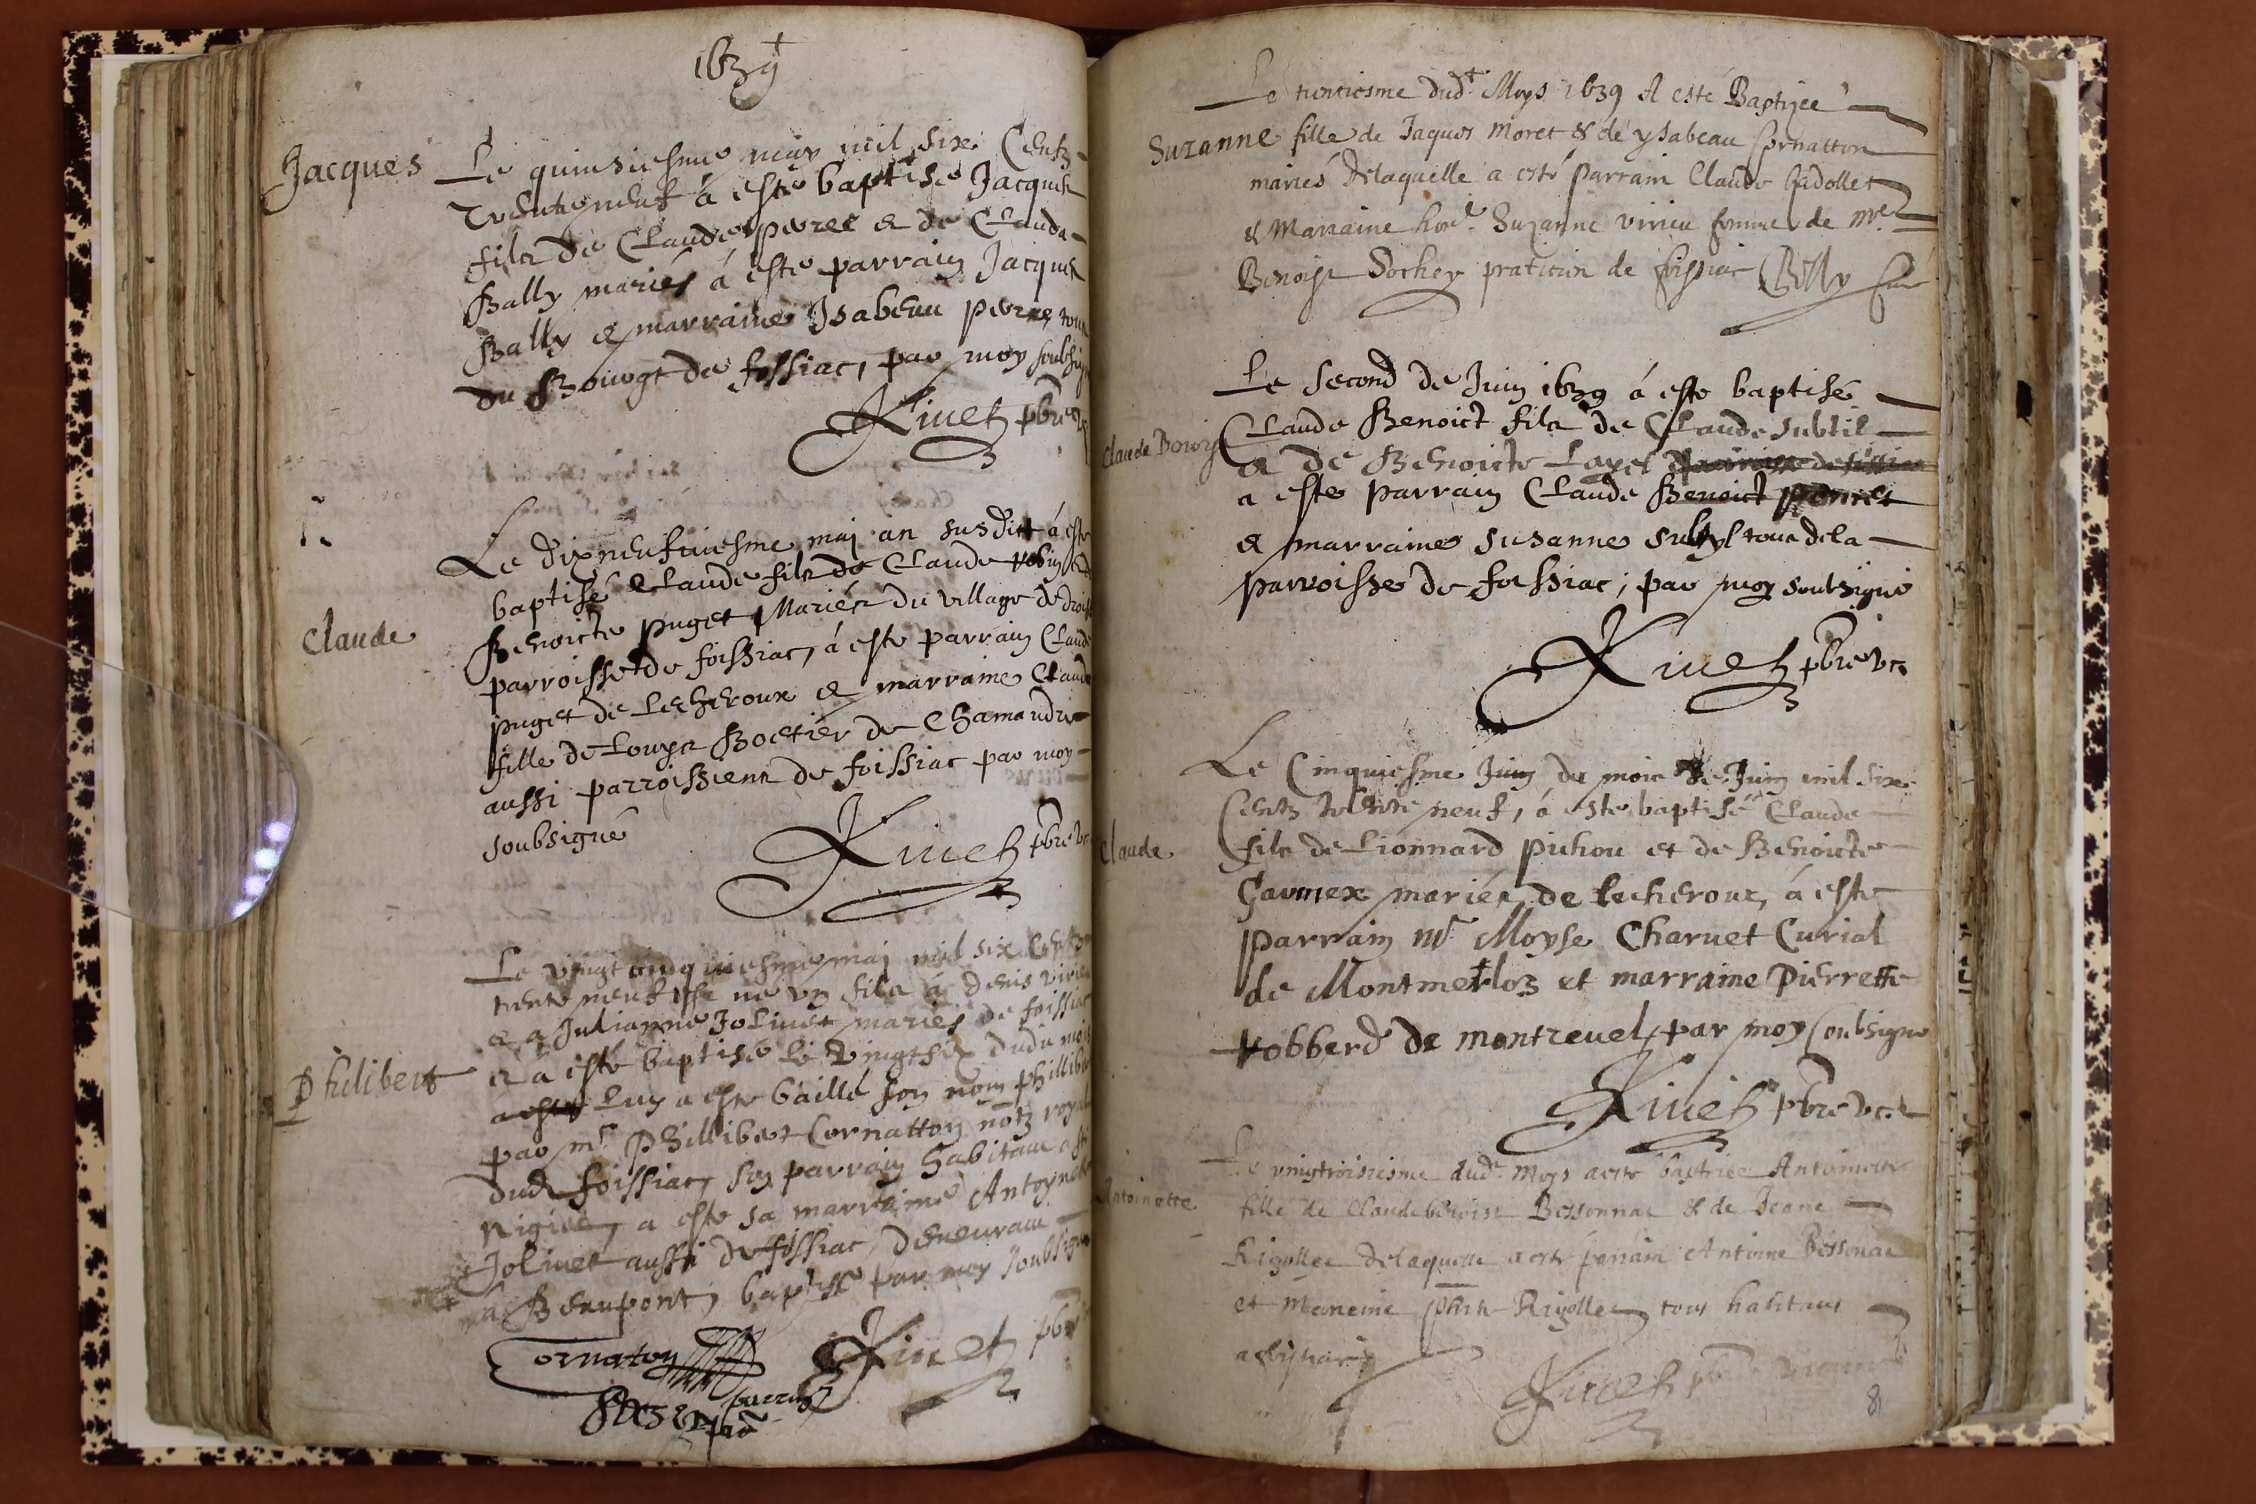 1639
Jacques
Le quinsiesme may mil six Centz
trente neuf à este baptisé Jacques
filz de Claude perret & de Clauda
Bally mariés à este parrain Jacques
Bally & marraine Isabeau
du Bourgt de foissiac, par moy soubsig
Rivet pbre
Claude
Le dixneufviesme maj an susdict à este
baptisé Claude filz de Claude
Benoicte puget Mariés du village de
parroisse de foissiac, à este parrain Claude
puget de Lescheroux & marraine Claud
fille de Louys Boetier de Chamandre
aussi parroissiens de foissiac par moy
soubsigné
Rivet pbre
Philibert
Le vingt cinquiesme maj mil six Centz
trente neuf est né un filz à denis
& a Julianne Jolivet mariés de foissiac
& à esté baptisé le vingt six dudit moi
Luy a este baillé son nom phillib
par mr Phillibert Cornatton nore roya
dud foissiac, son parrain habitant
a este sa marraine Antoyne
Jolivet aussi de foissiac demeurant
à Beaupont, baptisé par moy soubsigné
Cornaton
Rivet pbr
parrin
Le trentiesme dudt Moys 1639 A esté Baptizee
Suzanne fille de Jaques Moret & de ysabeau Cornatton
mariés delaquelle a esté parrain Claude Gadollet
& Marraine hone Suzanne virieu femme de mre
Benoist Socher praticien de foissiac Billy
Le second de Juin 1639 á este baptisé
Claude Benoist
Claude Benoict filz de Claude subtil
& de Benoicte Layet
a este parrain Claude Benoict
& marraine susanne subtyl tous dela
parroisse de foissiac, par moy soubsigné
Rivet pbre vc.
Le Cinquiesme Juin du mois de Juin mil six
Centz trente neuf, á este baptisé Claude
Claude
filz de Lionnard pichou et de Benoicte
mariés de lecheroux, á este
parrain mr. Moyse Charvet Curial
de Montmerloz et marraine Pierrette
robberd de montrevel, par moy soubsigné
Rivet pbre vc.
Le vingtroisiesme dudt Moys a esté baptizée Antoinette
Antoinette
fille de Claude benoist Bessonnat & de Jeane
Rigollet delaquelle a esté parrain Antoine Bessonat
et Mareine Rigollet tous habitans
a foissiac
Rivet pbre
81